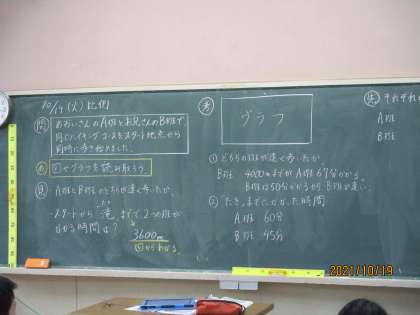 10/19 (火) 比例
問
あおいさんのA班とお兄さんのB班で、
同じハイキングコースをスタート地点から
同時に歩き始めました。
め
図やグラフを読み取ろう。
見
A班とB班のどちらが速く歩いたか。
・スタートから滝までで2つの班が
かかる時間は?
3600m
図からわかる。
考
グラフ
① どちらの班が速く歩いたか。
B班 4000mまでA班67分かかる。
B班は50分かかるから、B班が速い。
② たきまでにかかった時間
A班 60分
B班 45分
それぞれ
A班
B班
2021/10/19